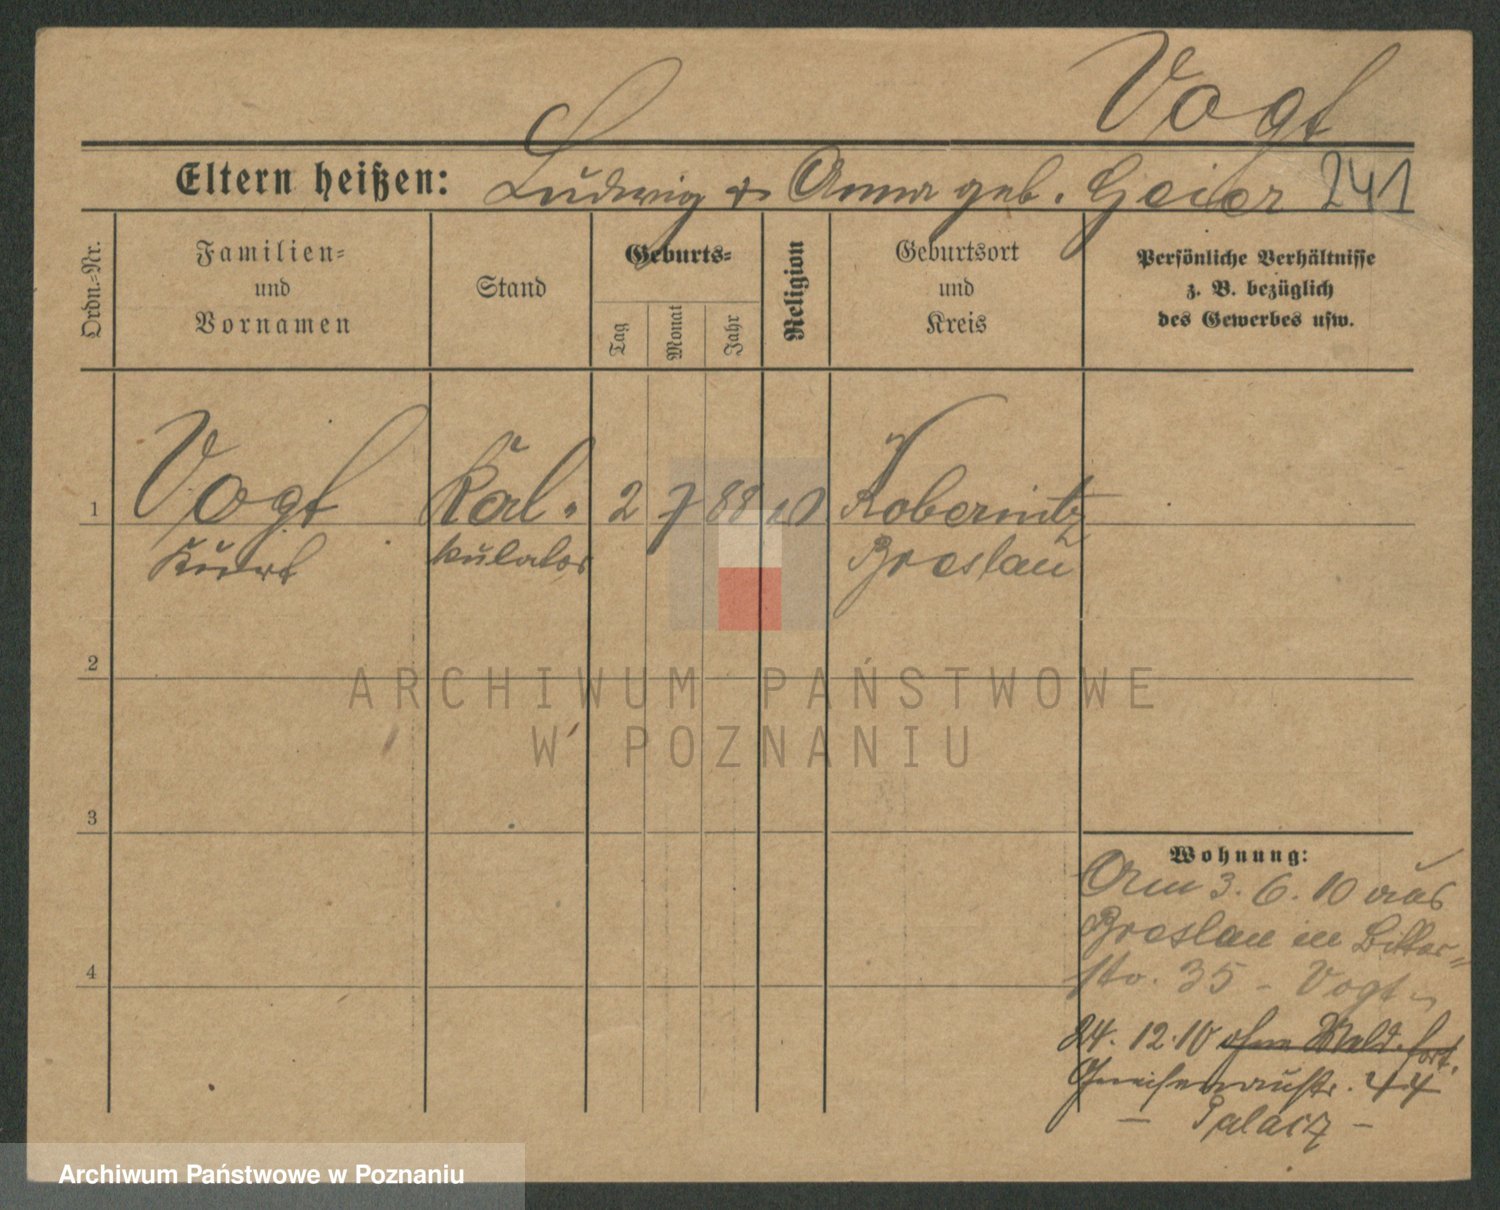 Vogt
Eltern heißen: Ludwig & Anna geb. Geier 241
Ordn.-Nr.
Familien-
und
Vornamen
Stand
Geburts-
Tag
Monat
Jahr
Religion
Geburtsort
und
Kreis
Persönliche Verhältnisse
z. B. bezüglich
des Gewerbes usw.
1 Vogt Kal. 2 7 88 Kobernitz
Kurt kulator Breslau
2
ARCHIWUM PAŃSTWOWE
W POZNANIU
3
Wohnung:
Am 3. 6. 10 aus
Breslau in Bitter-
str. 35 - Vogt -
4
24. 12. 10 ohne Meld. fort.
Gneisenaustr. 44
- Palacz -
Archiwum Państwowe w Poznaniu